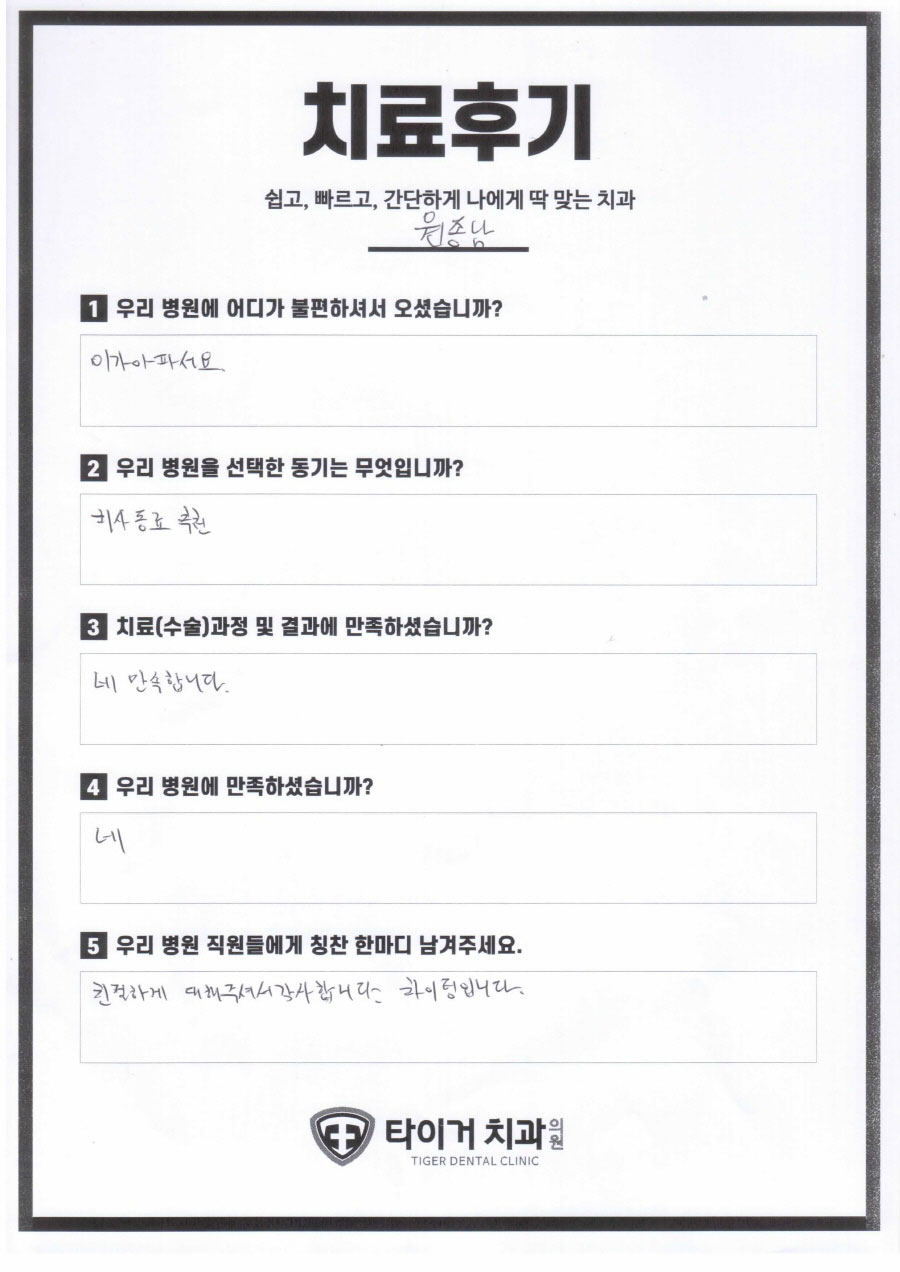 치료후기
쉽고, 빠르고, 간단하게 나에게 딱 맞는 치과
원종남
1 우리 병원에 어디가 불편하셔서 오셨습니까?
이가아파서요.
2 우리 병원을 선택한 동기는 무엇입니까?
회사동료 추천
3 치료(수술)과정 및 결과에 만족하셨습니까?
네 만족합니다.
4 우리 병원에 만족하셨습니까?
네
5 우리 병원 직원들에게 칭찬 한마디 남겨주세요.
친절하게 대해주셔서감사합니다~ 화이팅입니다.
타이거 치과의원
TIGER DENTAL CLINIC